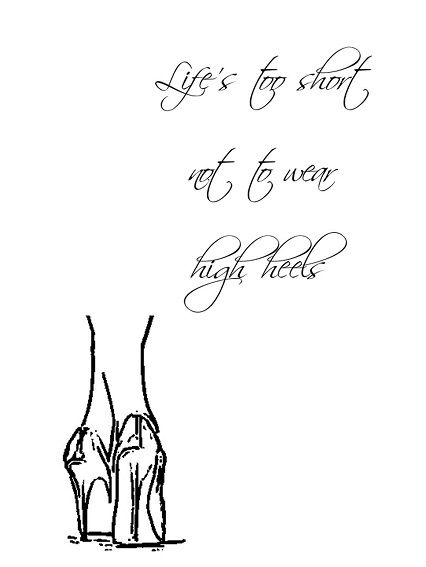 Life's too short
not to wear
high heels